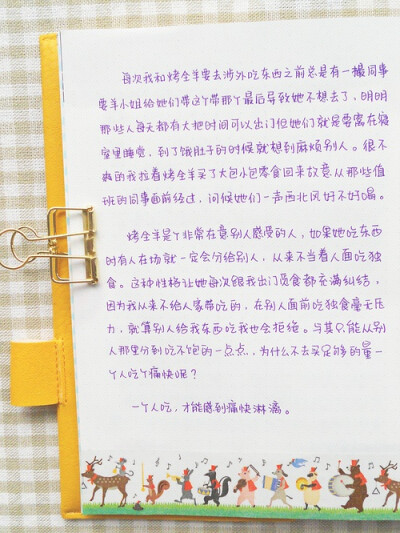 每次我和烤全羊要去涉外吃东西之前总是有一撮同事
要羊小姐给她们带这个带那个最后导致她不想去了，明明
那些人每天都有大把时间可以出门但她们就是要窝在寝
室里睡觉，到了饿肚子的时候就想到麻烦别人。很不
爽的我拉着烤全羊买了大包小包零食回来故意从那些值
班的同事面前经过，问候她们一声西北风好不好喝。
烤全羊是个非常在意别人感受的人，如果她吃东西
时有人在场就一定会分给别人，从来不当着人面吃独
食。这种性格让她每次跟我出门觅食都充满纠结，
因为我从来不给人家带吃的，在别人面前吃独食毫无压
力，就算别人给我东西吃我也会拒绝。与其只能从别
人那里分到吃不饱的一点点，为什么不去买足够的量一
个人吃个痛快呢？
一个人吃，才能感到痛快淋漓。